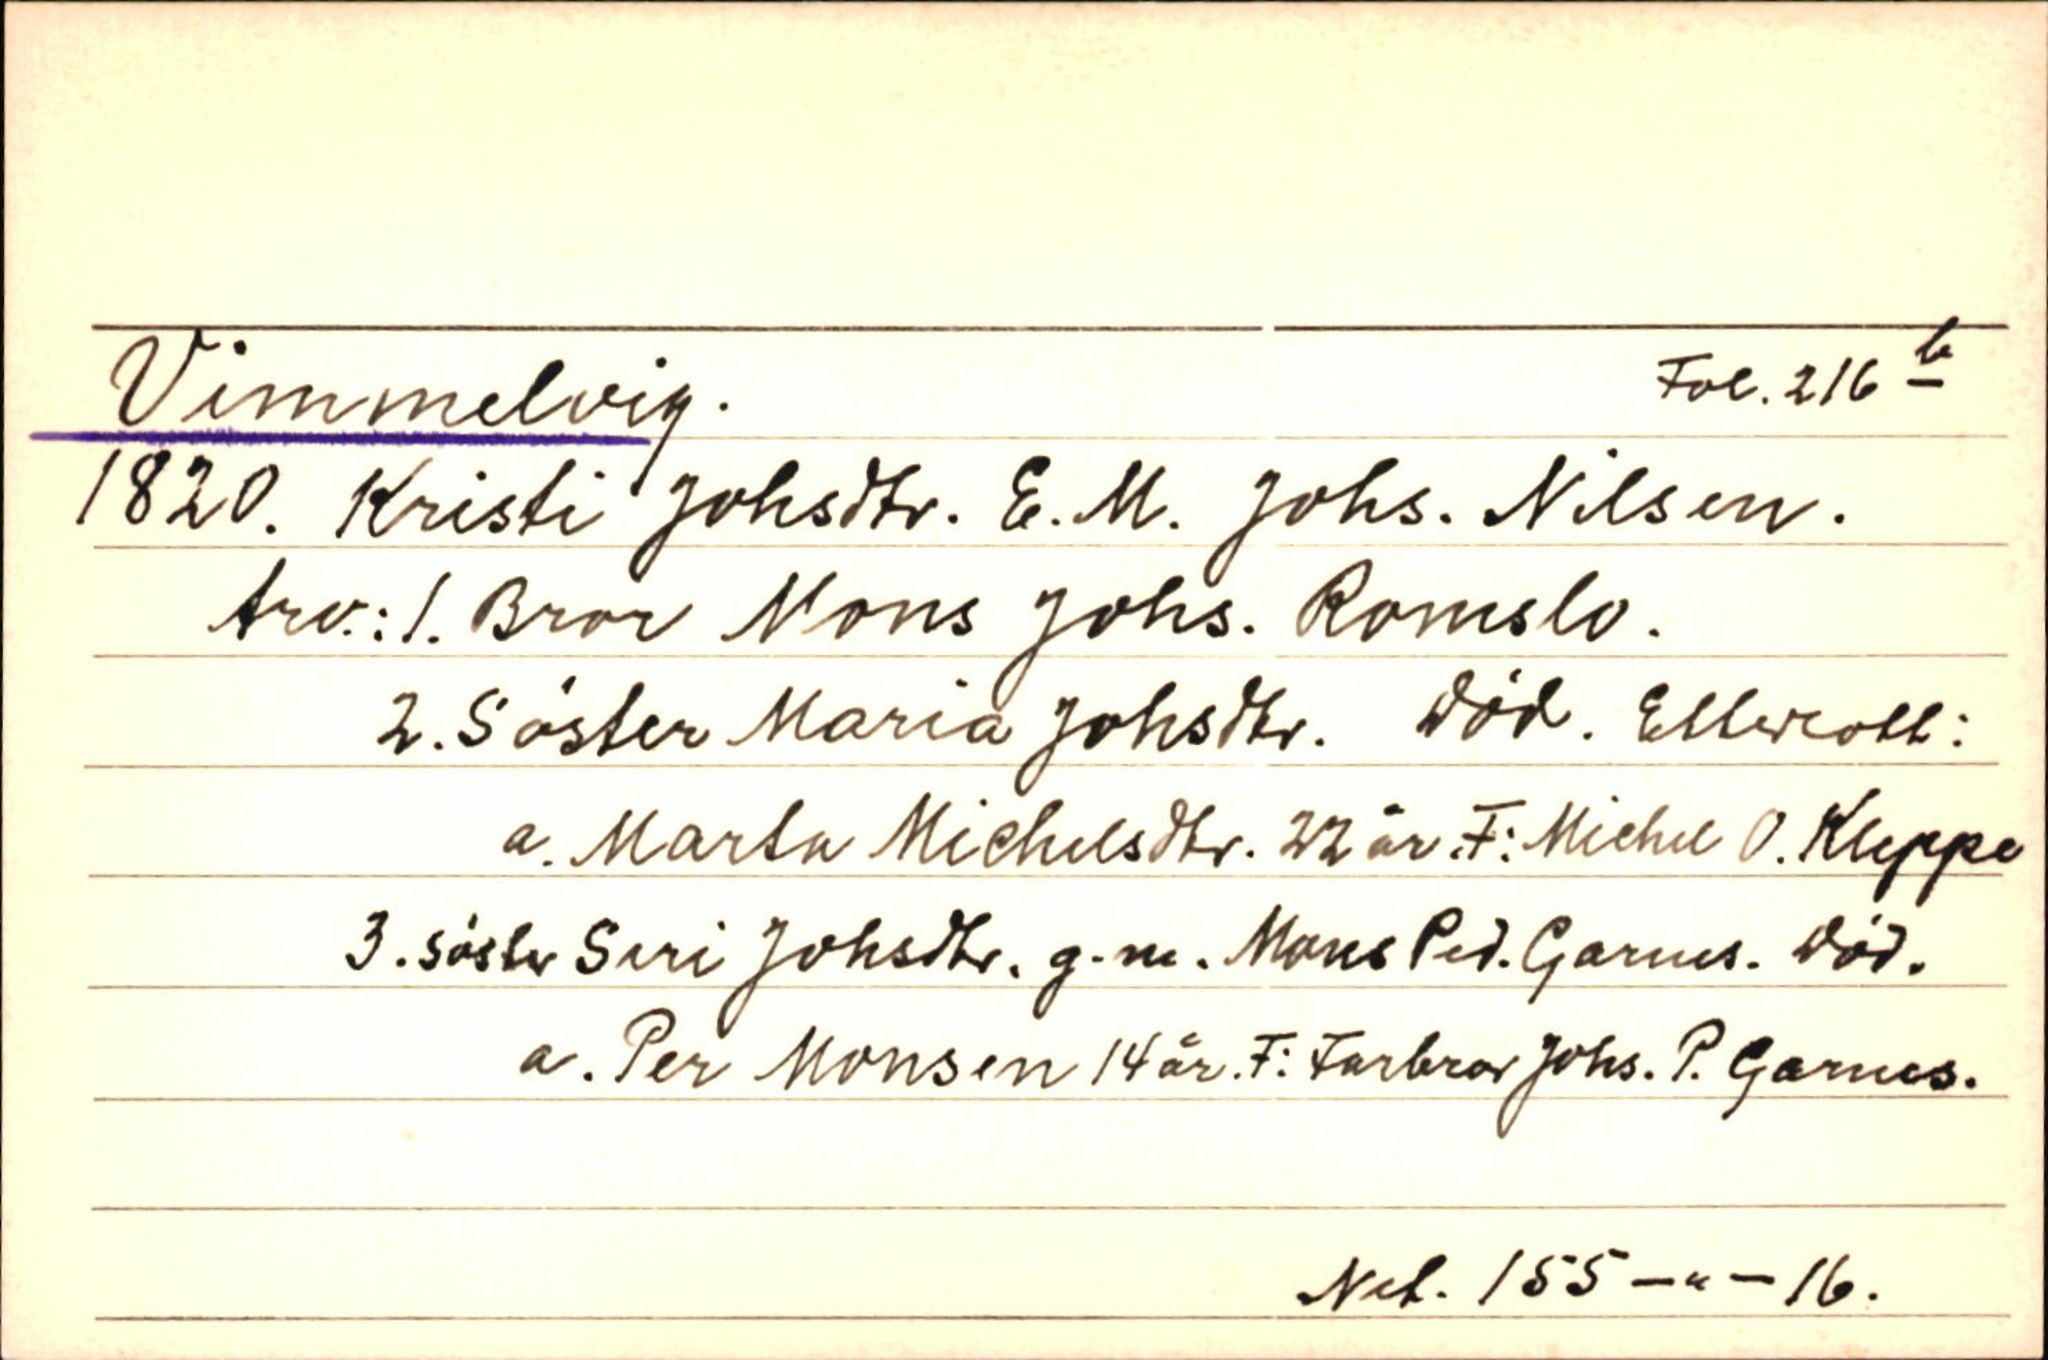 Vimmelvig. Fol. 216 b
1820. Kristi Johsdtr. E. M. Johs. Nilsen.
Arv.: 1. Bror Mons Johs. Romslo.
2. Söster Maria Johsdtr. död. Etterlatt:
a. Marta Michelsdtr. 22 år. F: Michel O. Kleppe
3. söster Siri Johsdtr. g. m. Mons Ped. Garnes. död.
a. Per Monsen 14 år. F: Farbror Johs. P. Garnes.
Net. 155 — " — 16.